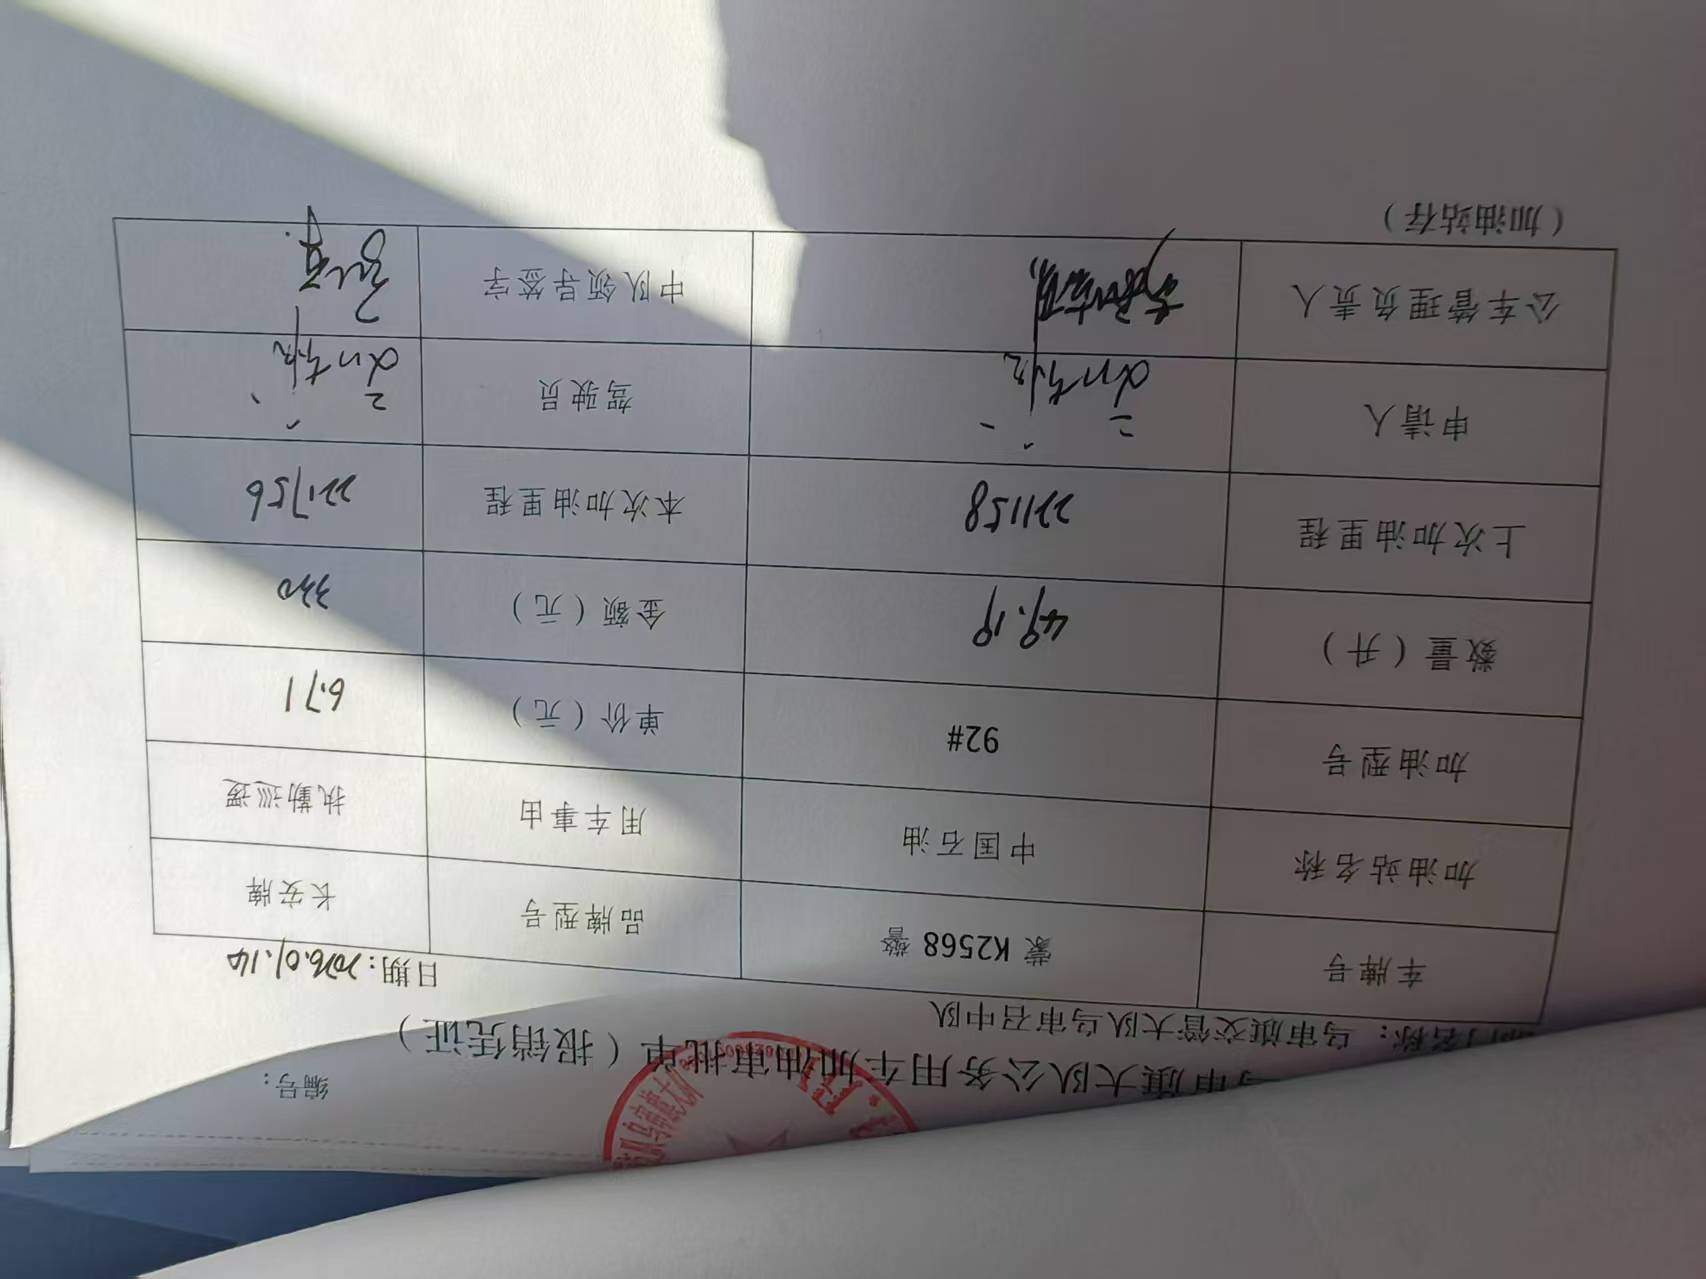 编号:
乌审旗大队公务用车加油审批单（报销凭证）
部门名称：乌审旗交管大队乌审召中队 日期:2026.01.14
车牌号 蒙 K2568 警 品牌型号 长安牌
加油站名称 中国石油 用车事由 执勤巡逻
加油型号 92# 单价（元） 6.71
数量（升） 49.19 金额（元） 330
上次加油里程 221158 本次加油里程 221756
申请人 驾驶员
公车管理负责人 中队领导签字
（加油站存）